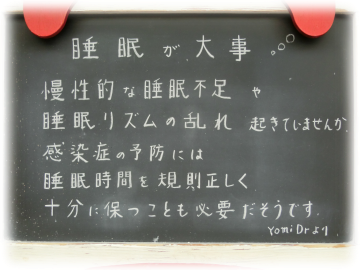 睡眠が大事...
慢性的な睡眠不足や
睡眠リズムの乱れ 起きていませんか
感染症の予防には
睡眠時間を規則正しく
十分に保つことも必要だそうです.
Yomi Drより